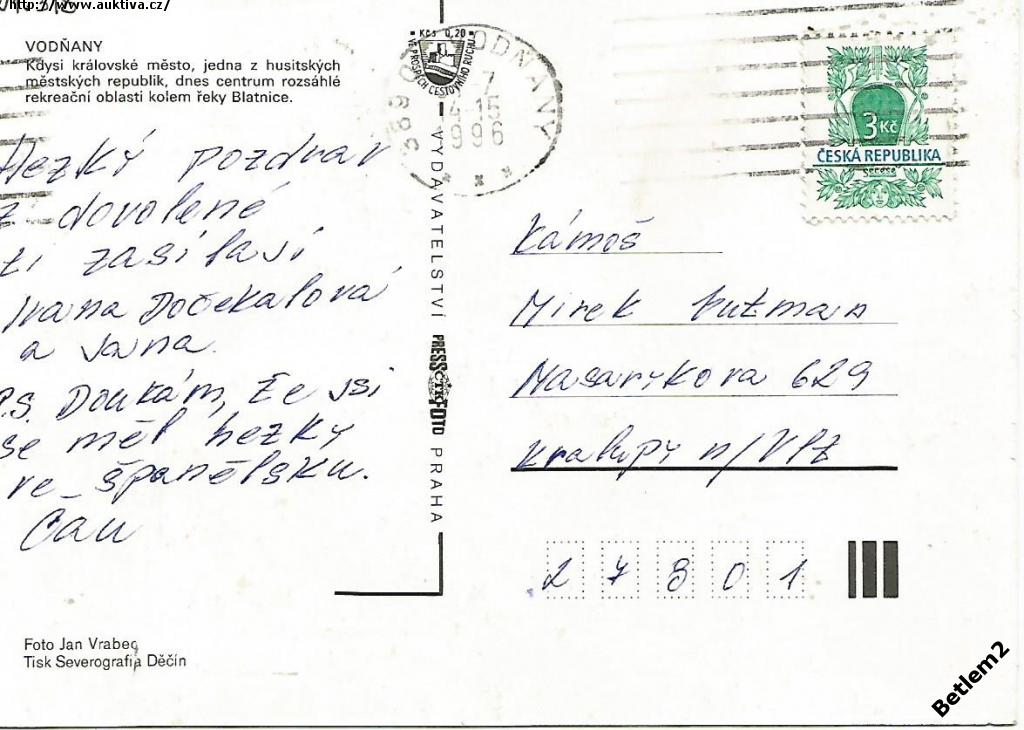 http://www.auktiva.cz/
VODŇANY
Kdysi královské město, jedna z husitských
městských republik, dnes centrum rozsáhlé
rekreační oblasti kolem řeky Blatnice.
Hezký pozdrav
z dovolené
ti zasílají
Ivana Dočekalová
a Jana.
P.S. Doukám, že jsi
se měl hezky
ve španělsku.
Čau
Foto Jan Vrabec
Tisk Severografia Děčín
Kčs 0,20
VE PROSPĚCH CESTOVNÍHO RUCHU
VYDAVATELSTVÍ PRESSFOTO PRAHA
ČTK
VODŇANY
7
4-15
1996
389 01
3 Kč
ČESKÁ REPUBLIKA
Secese
Kámoš
Mirek Hutman
Masarykova 629
Kralupy n/Vlt
27801
Betlem2